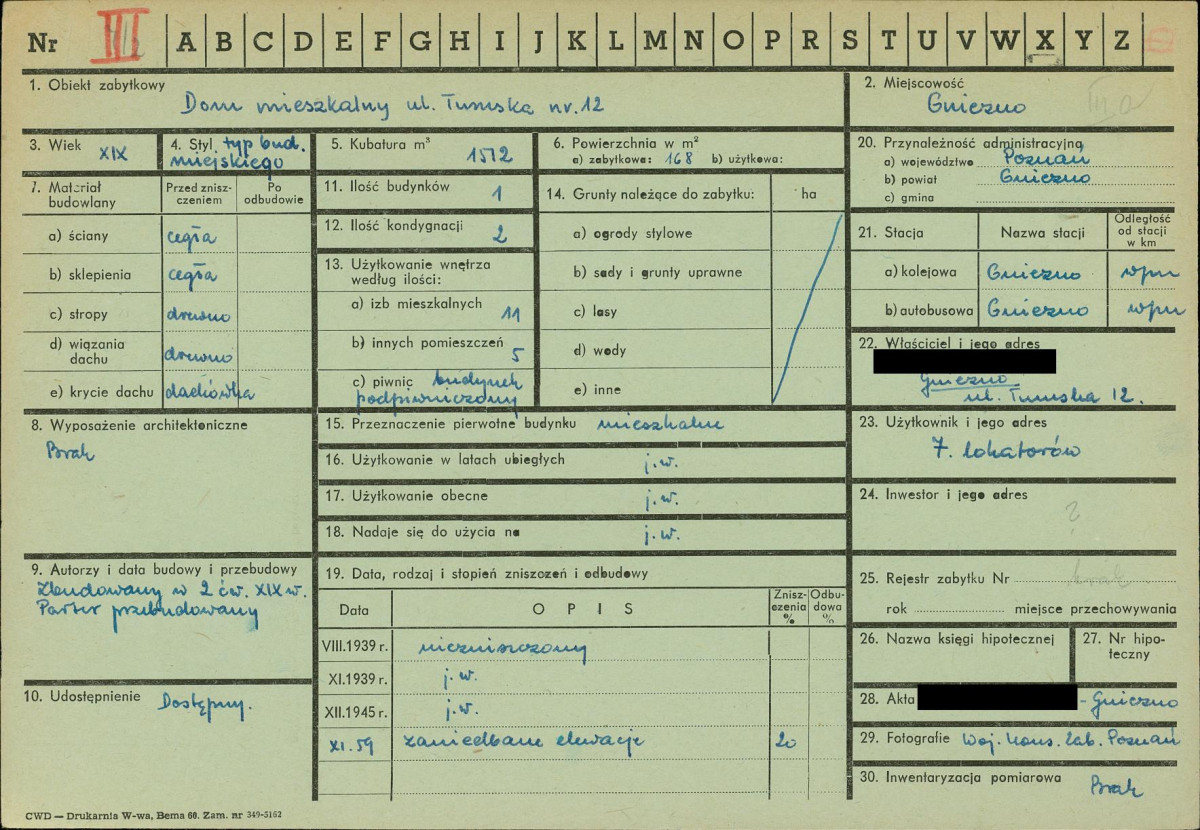 Nr III A B C D E F G H I J K L M N O P R S T U V W X Y Z
1. Obiekt zabytkowy
Dom mieszkalny ul. Tumska nr. 12
2. Miejscowość
Gniezno
III a
3. Wiek
XIX
4. Styl typ bud.
miejskiego
5. Kubatura m³
1512
6. Powierzchnia w m²
a) zabytkowa: 168 b) użytkowa:
7. Materiał budowlany
Przed zniszczeniem
Po odbudowie
a) ściany cegła
b) sklepienia cegła
c) stropy drewno
d) wiązania dachu drewno
e) krycie dachu dachówka
11. Ilość budynków
1
12. Ilość kondygnacji
2
13. Użytkowanie wnętrza
według ilości:
a) izb mieszkalnych
11
b) innych pomieszczeń
5
c) piwnic budynek
podpiwniczony
14. Grunty należące do zabytku: ha
a) ogrody stylowe
b) sady i grunty uprawne
c) lasy
d) wody
e) inne
20. Przynależność administracyjna
a) województwo Poznań
b) powiat Gniezno
c) gmina
21. Stacja Nazwa stacji
Odległość
od stacji
w km
a) kolejowa Gniezno wpm
b) autobusowa Gniezno wpm
22. Właściciel i jego adres
Gniezno
ul. Tumska 12.
8. Wyposażenie architektoniczne
Brak
15. Przeznaczenie pierwotne budynku mieszkalne
16. Użytkowanie w latach ubiegłych j.w.
17. Użytkowanie obecne j.w.
18. Nadaje się do użycia na j.w.
23. Użytkownik i jego adres
7. lokatorów
24. Inwestor i jego adres
?
9. Autorzy i data budowy i przebudowy
Zbudowany w 2 ćw. XIX w.
Parter przebudowany
10. Udostępnienie Dostępny.
19. Data, rodzaj i stopień zniszczeń i odbudowy
Data OPIS
Znisz-
czenia
%
Odbu-
dowa
%
VIII.1939 r. niezniszczony
XI.1939 r. j.w.
XII.1945 r. j.w.
XI.59 zaniedbane elewacje 20
25. Rejestr zabytku Nr brak
rok miejsce przechowywania
26. Nazwa księgi hipotecznej
27. Nr hipo-
teczny
28. Akta - Gniezno
29. Fotografie Woj. Kons. Zab. Poznań
30. Inwentaryzacja pomiarowa
Brak
CWD — Drukarnia W-wa, Bema 60. Zam. nr 349-5162